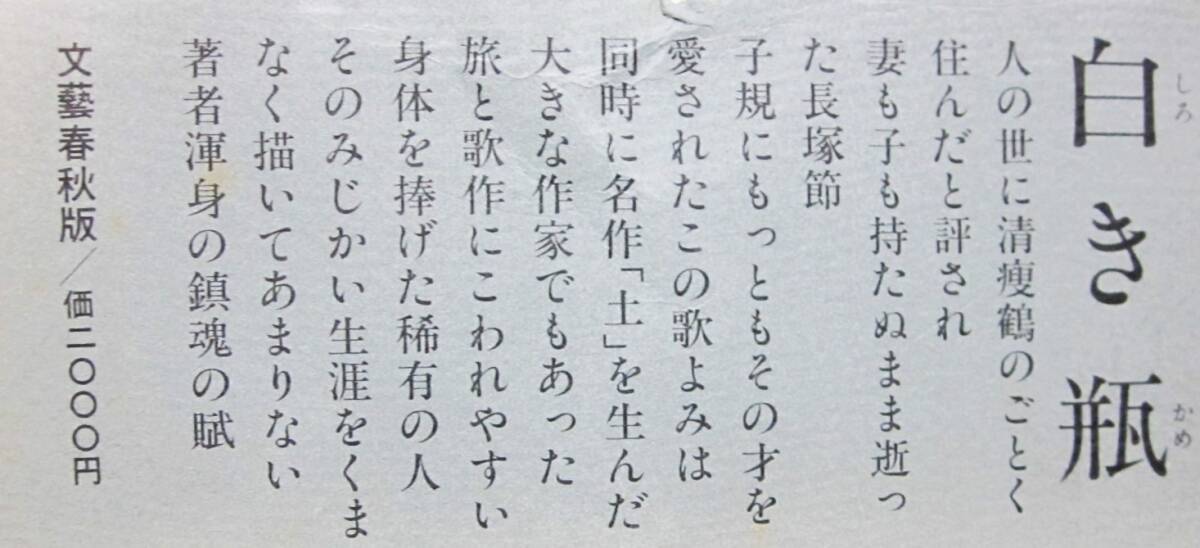 白き瓶
しろ
かめ
人の世に清痩鶴のごとく
住んだと評され
妻も子も持たぬまま逝っ
た長塚節
子規にもっともその才を
愛されたこの歌よみは
同時に名作「土」を生んだ
大きな作家でもあった
旅と歌作にこわれやすい
身体を捧げた稀有の人
そのみじかい生涯をくま
なく描いてあまりない
著者渾身の鎮魂の賦
文藝春秋版/価二〇〇〇円